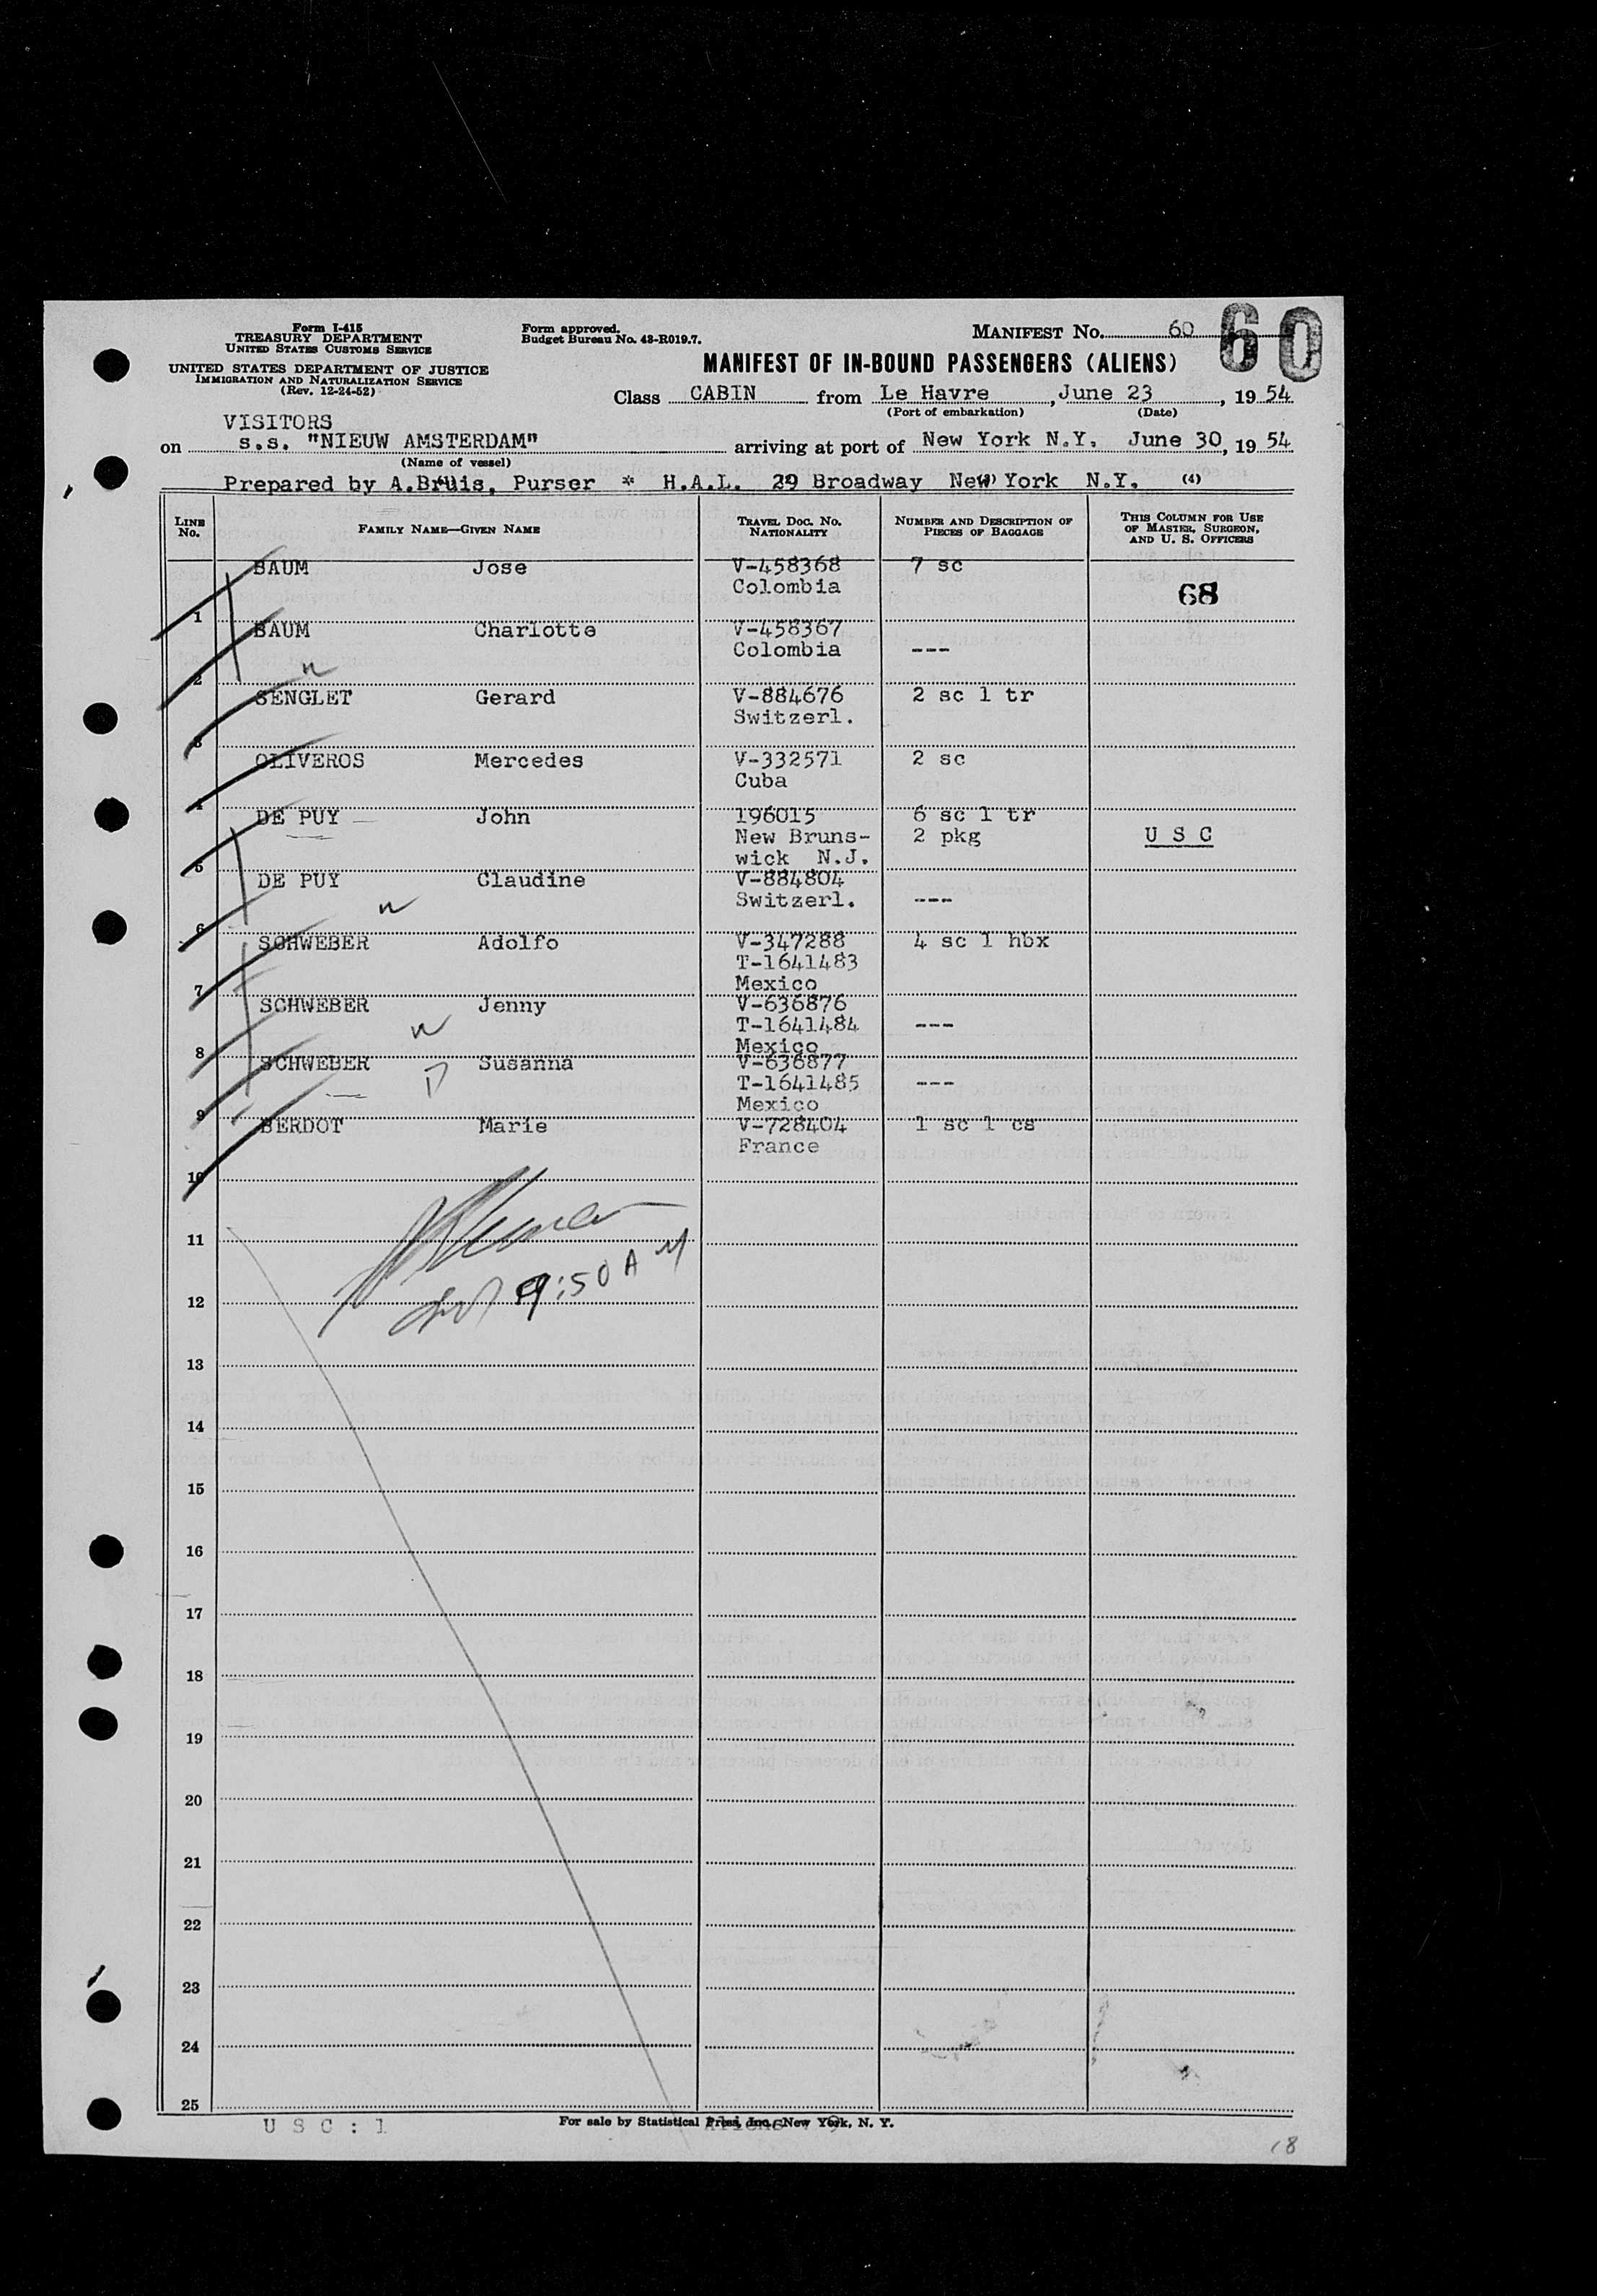 Form I-415
TREASURY DEPARTMENT
UNITED STATES CUSTOMS SERVICE
UNITED STATES DEPARTMENT OF JUSTICE
IMMIGRATION AND NATURALIZATION SERVICE
(Rev. 12-24-52)
Form approved.
Budget Bureau No. 43-R019.7.
MANIFEST NO. 60
60
MANIFEST OF IN-BOUND PASSENGERS (ALIENS)
Class CABIN from Le Havre, June 23, 1954
(Port of embarkation) (Date)
VISITORS
on s.s. "NIEUW AMSTERDAM" arriving at port of New York N.Y. June 30, 1954
(Name of vessel)
Prepared by A.Bruis, Purser * H.A.L. 29 Broadway New York N.Y. (4)
LINE NO. FAMILY NAME—GIVEN NAME TRAVEL DOC. NO. NATIONALITY NUMBER AND DESCRIPTION OF PIECES OF BAGGAGE THIS COLUMN FOR USE OF MASTER, SURGEON, AND U. S. OFFICERS
BAUM Jose V-458368 7 sc
Colombia
68
1
BAUM Charlotte V-458367
Colombia ---
2
SENGLET Gerard V-884676 2 sc 1 tr
Switzerl.
3
OLIVEROS Mercedes V-332571 2 sc
Cuba
4
DE PUY John 196015 6 sc 1 tr
New Bruns- 2 pkg U S C
wick N.J.
5
DE PUY Claudine V-884804
Switzerl. ---
6
SCHWEBER Adolfo V-347288 4 sc 1 hbx
T-1641483
Mexico
7
SCHWEBER Jenny V-636876
T-1641484 ---
Mexico
8
SCHWEBER Susanna V-636877
T-1641485 ---
Mexico
9
BERDOT Marie V-728404 1 sc 1 cs
France
10
11
9:50 AM
12
13
14
15
16
17
18
19
20
21
22
23
24
25
U S C : 1
For sale by Statistical Press, Inc., New York, N. Y.
18